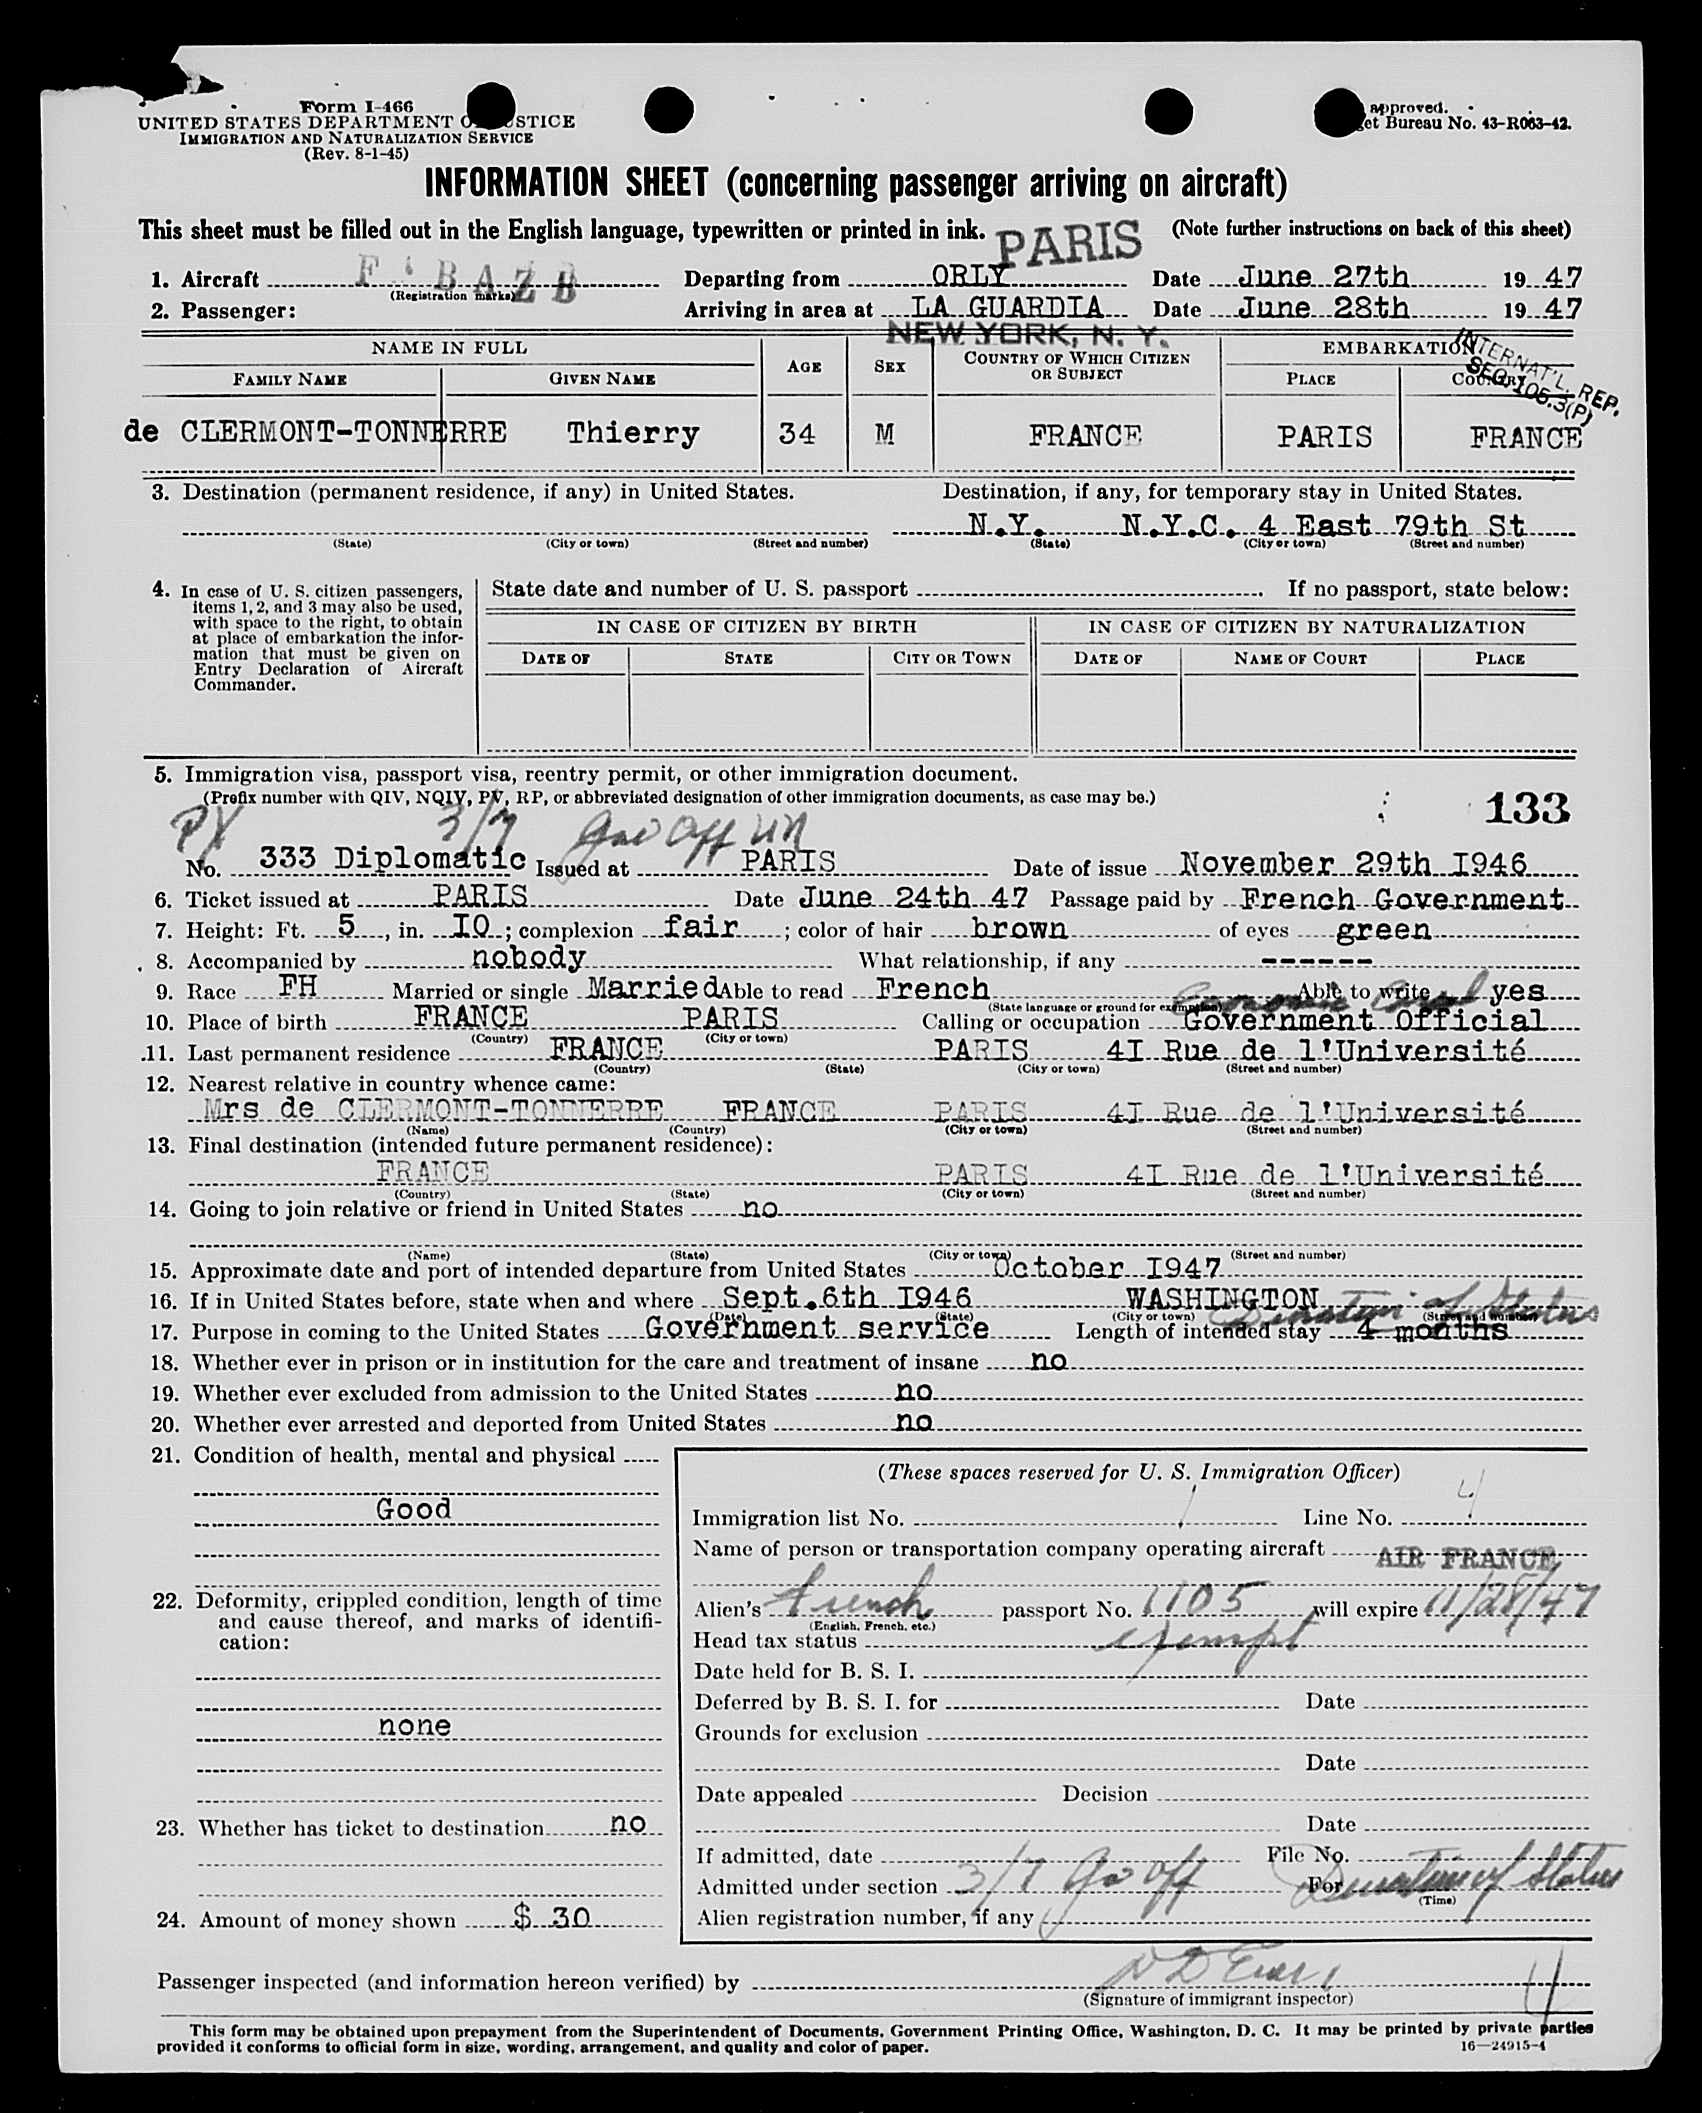 Form I-466
UNITED STATES DEPARTMENT OF JUSTICE
IMMIGRATION AND NATURALIZATION SERVICE
(Rev. 8-1-45)
approved.
Bureau No. 43-R063-42.
INFORMATION SHEET (concerning passenger arriving on aircraft)
This sheet must be filled out in the English language, typewritten or printed in ink. (Note further instructions on back of this sheet)
PARIS
1. Aircraft F-BAZB Departing from ORLY Date June 27th 1947
(Registration marks)
2. Passenger: Arriving in area at LA GUARDIA Date June 28th 1947
NEW YORK, N. Y.
INTERNAT'L. REP.
SEC. 105.3(P)
NAME IN FULL AGE SEX COUNTRY OF WHICH CITIZEN OR SUBJECT EMBARKATION
FAMILY NAME GIVEN NAME PLACE COUNTRY
de CLERMONT-TONNERRE Thierry 34 M FRANCE PARIS FRANCE
3. Destination (permanent residence, if any) in United States. Destination, if any, for temporary stay in United States.
N.Y. N.Y.C. 4 East 79th St
(State) (City or town) (Street and number) (State) (City or town) (Street and number)
4. In case of U. S. citizen passengers,
items 1, 2, and 3 may also be used,
with space to the right, to obtain
at place of embarkation the infor-
mation that must be given on
Entry Declaration of Aircraft
Commander.
State date and number of U. S. passport If no passport, state below:
IN CASE OF CITIZEN BY BIRTH IN CASE OF CITIZEN BY NATURALIZATION
DATE OF STATE CITY OR TOWN DATE OF NAME OF COURT PLACE
5. Immigration visa, passport visa, reentry permit, or other immigration document.
(Prefix number with QIV, NQIV, PV, RP, or abbreviated designation of other immigration documents, as case may be.)
133
PV 3/7 Gov Off UN
No. 333 Diplomatic Issued at PARIS Date of issue November 29th I946
6. Ticket issued at PARIS Date June 24th 47 Passage paid by French Government
7. Height: Ft. 5, in. I0; complexion fair; color of hair brown of eyes green
8. Accompanied by nobody What relationship, if any ------
9. Race FH Married or single Married Able to read French Able to write yes
(State language or ground for exemption)
10. Place of birth FRANCE PARIS Calling or occupation Government Official
(Country) (City or town)
11. Last permanent residence FRANCE PARIS 4I Rue de l'Université
(Country) (State) (City or town) (Street and number)
12. Nearest relative in country whence came:
Mrs de CLERMONT-TONNERRE FRANCE PARIS 4I Rue de l'Université
(Name) (Country) (City or town) (Street and number)
13. Final destination (intended future permanent residence):
FRANCE PARIS 4I Rue de l'Université
(Country) (State) (City or town) (Street and number)
14. Going to join relative or friend in United States no
(Name) (State) (City or town) (Street and number)
15. Approximate date and port of intended departure from United States October I947
16. If in United States before, state when and where Sept.6th I946 WASHINGTON
(Date) (State) (City or town) (Street and number)
Duration of Status
17. Purpose in coming to the United States Government service Length of intended stay 4 months
18. Whether ever in prison or in institution for the care and treatment of insane no
19. Whether ever excluded from admission to the United States no
20. Whether ever arrested and deported from United States no
21. Condition of health, mental and physical
Good
22. Deformity, crippled condition, length of time
and cause thereof, and marks of identifi-
cation:
none
23. Whether has ticket to destination no
24. Amount of money shown $ 30
(These spaces reserved for U. S. Immigration Officer)
Immigration list No. 1 Line No. 4
Name of person or transportation company operating aircraft AIR FRANCE
Alien's French passport No. 1105 will expire 11/28/47
(English, French, etc.)
Head tax status exempt
Date held for B. S. I.
Deferred by B. S. I. for Date
Grounds for exclusion
Date
Date appealed Decision
Date
If admitted, date File No.
Admitted under section 3/7 Gov Off For Duration of Status
(Time)
Alien registration number, if any
Passenger inspected (and information hereon verified) by
(Signature of immigrant inspector)
4
This form may be obtained upon prepayment from the Superintendent of Documents, Government Printing Office, Washington, D. C. It may be printed by private parties
provided it conforms to official form in size, wording, arrangement, and quality and color of paper.
16—24915-4